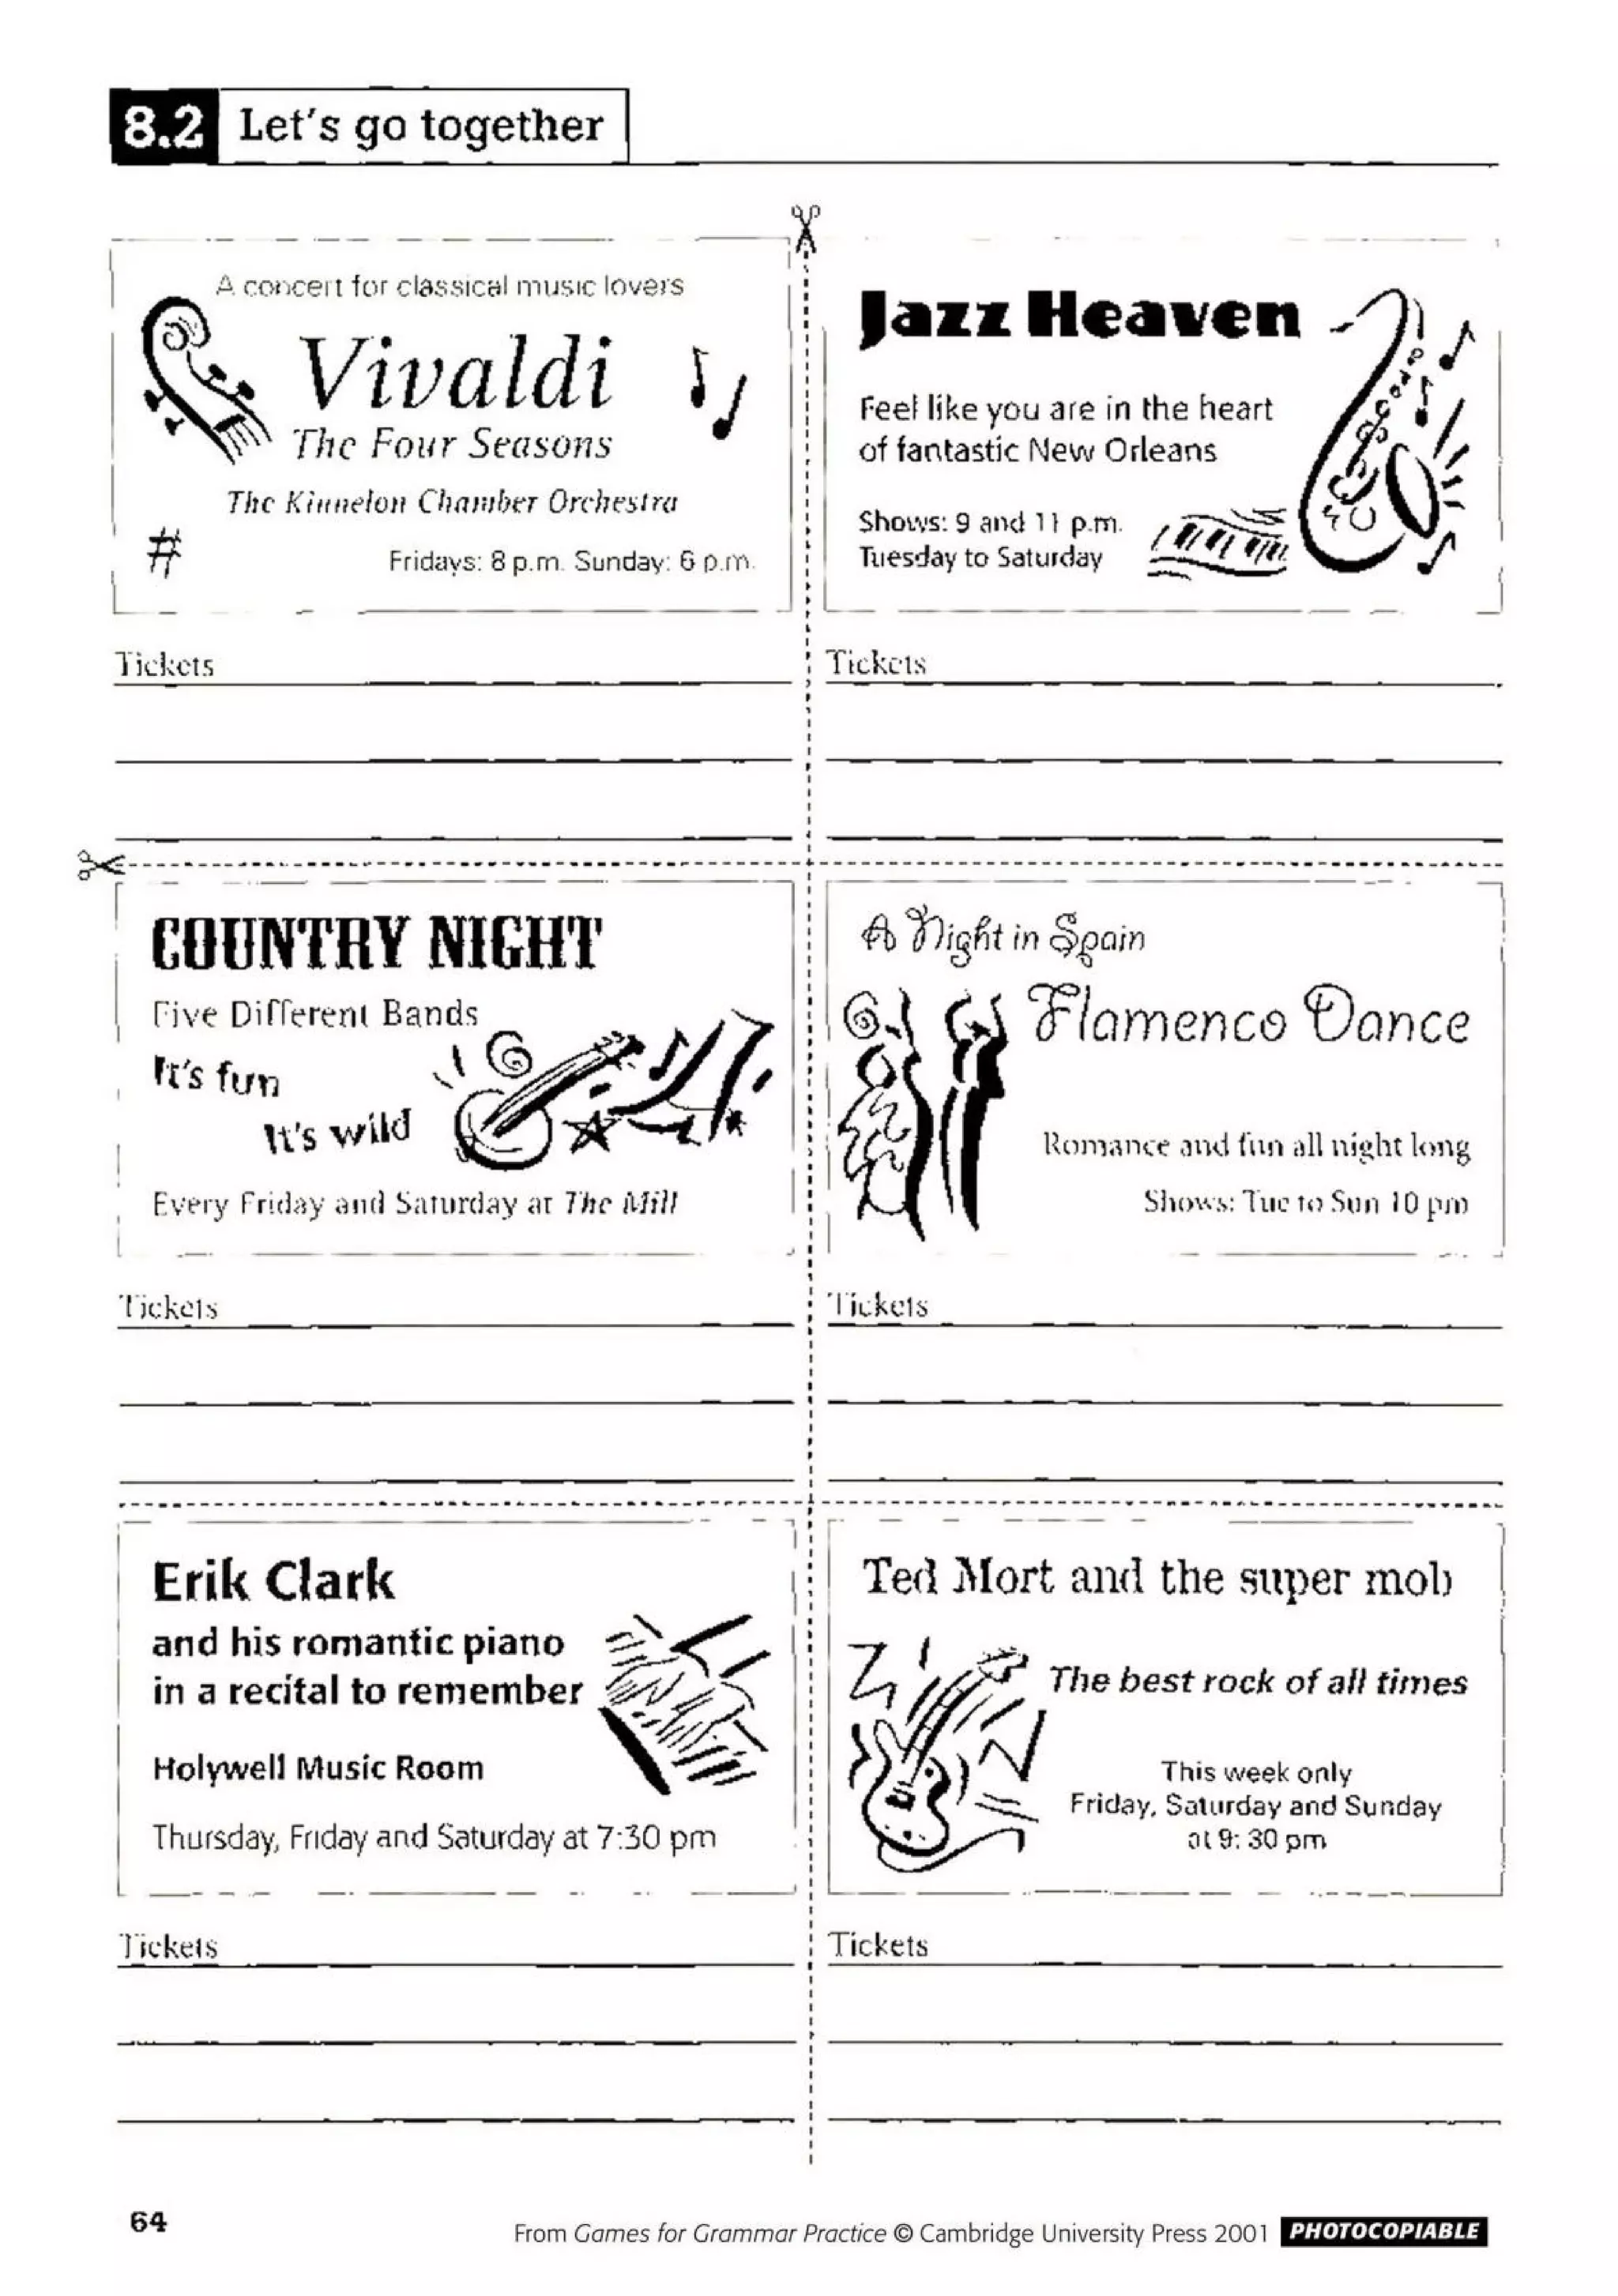 8.2 Let's go together
A concert for classical music lovers
Vivaldi
The Four Seasons
The Kinnelon Chamber Orchestra
#
Fridays: 8 p.m. Sunday: 6 p.m.
Tickets
Jazz Heaven
Feel like you are in the heart
of fantastic New Orleans
Shows: 9 and 11 p.m.
Tuesday to Saturday
Tickets
COUNTRY NIGHT
Five Different Bands
It's fun
It's wild
Every Friday and Saturday at The Mill
Tickets
A Night in Spain
Flamenco Dance
Romance and fun all night long
Shows: Tue to Sun 10 pm
Tickets
Erik Clark
and his romantic piano
in a recital to remember
Holywell Music Room
Thursday, Friday and Saturday at 7:30 pm
Tickets
Ted Mort and the super mob
The best rock of all times
This week only
Friday, Saturday and Sunday
at 9:30 pm
Tickets
64
From Games for Grammar Practice © Cambridge University Press 2001 PHOTOCOPIABLE